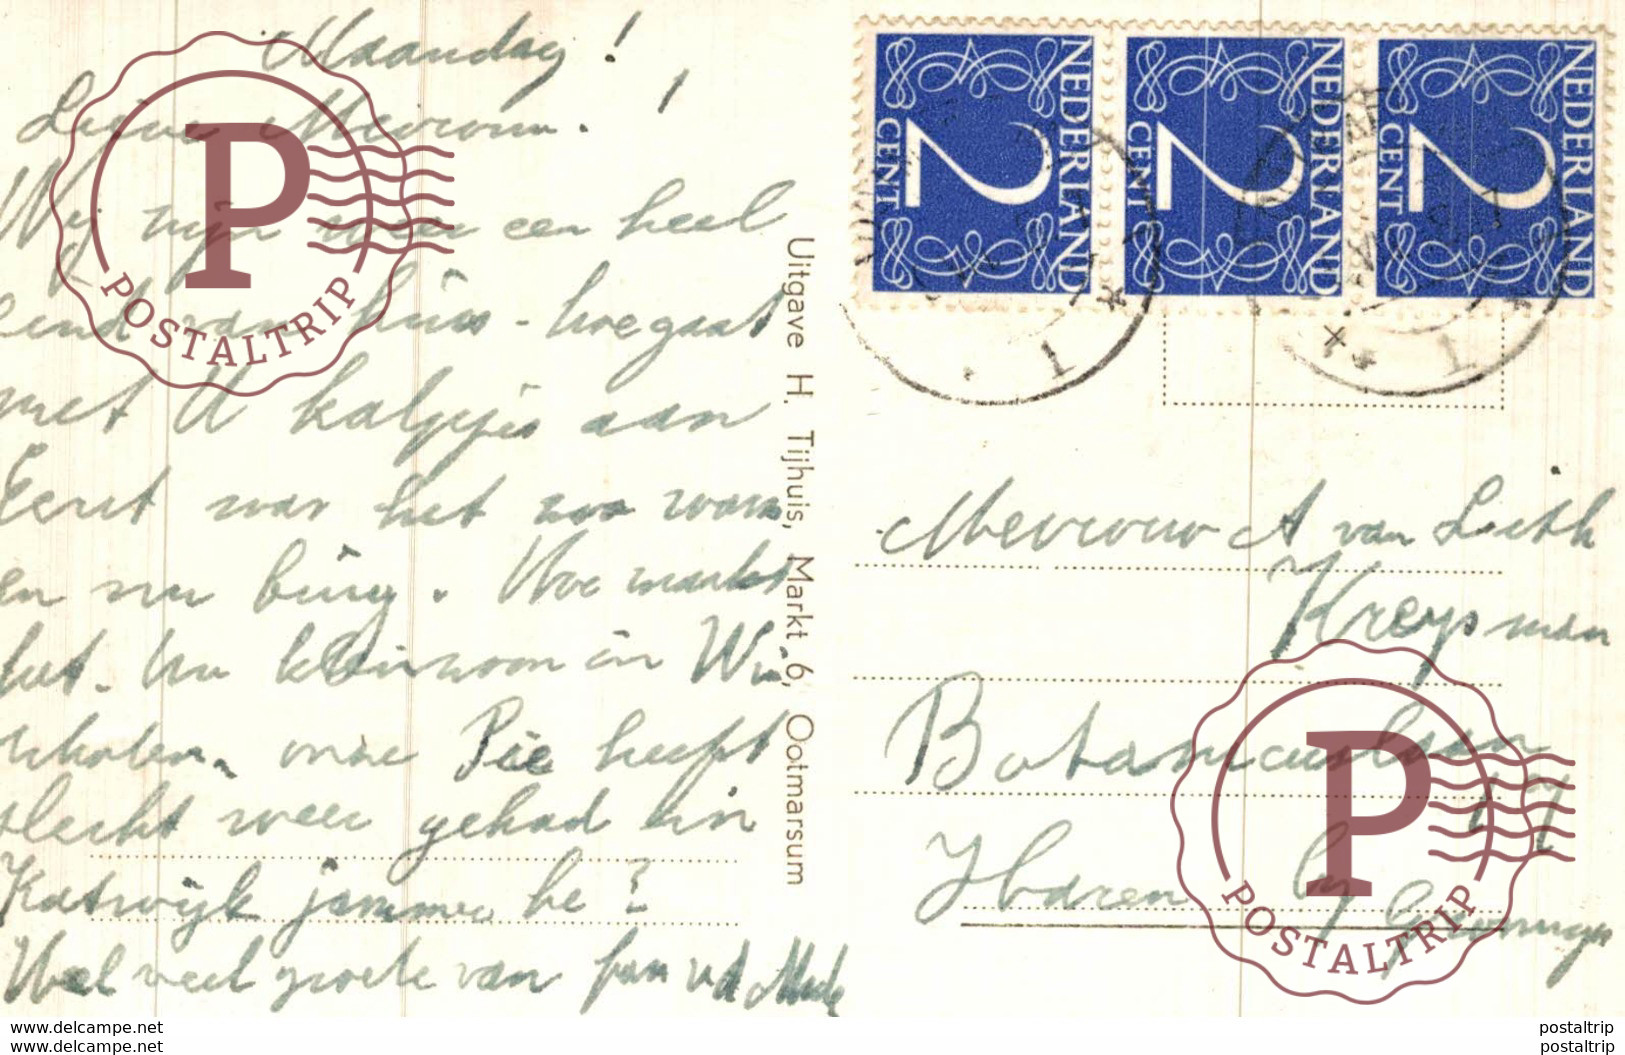 Maandag!
Lieve Mevrouw!
Wij zijn weer een heel
eind van huis - hoe gaat
met U kalpjes aan
Eerst was het zoo warm
en nu buiig. Hoe maakt
het Uw kleinzoon in Win
schoten. onze Pie heeft
slecht weer gehad in
Katwijk jammer he?
Veel veel groete van fam v d
Uitgave H. Tijhuis, Markt 6, Ootmarsum
NEDERLAND
2
CENT
NEDERLAND
2
CENT
NEDERLAND
2
CENT
1
1
Mevrouw A van Lith
Kreysman
Botanicuslaan
Haren by Groningen
P
POSTALTRIP
P
POSTALTRIP
www.delcampe.net
www.delcampe.net
postaltrip
postaltrip